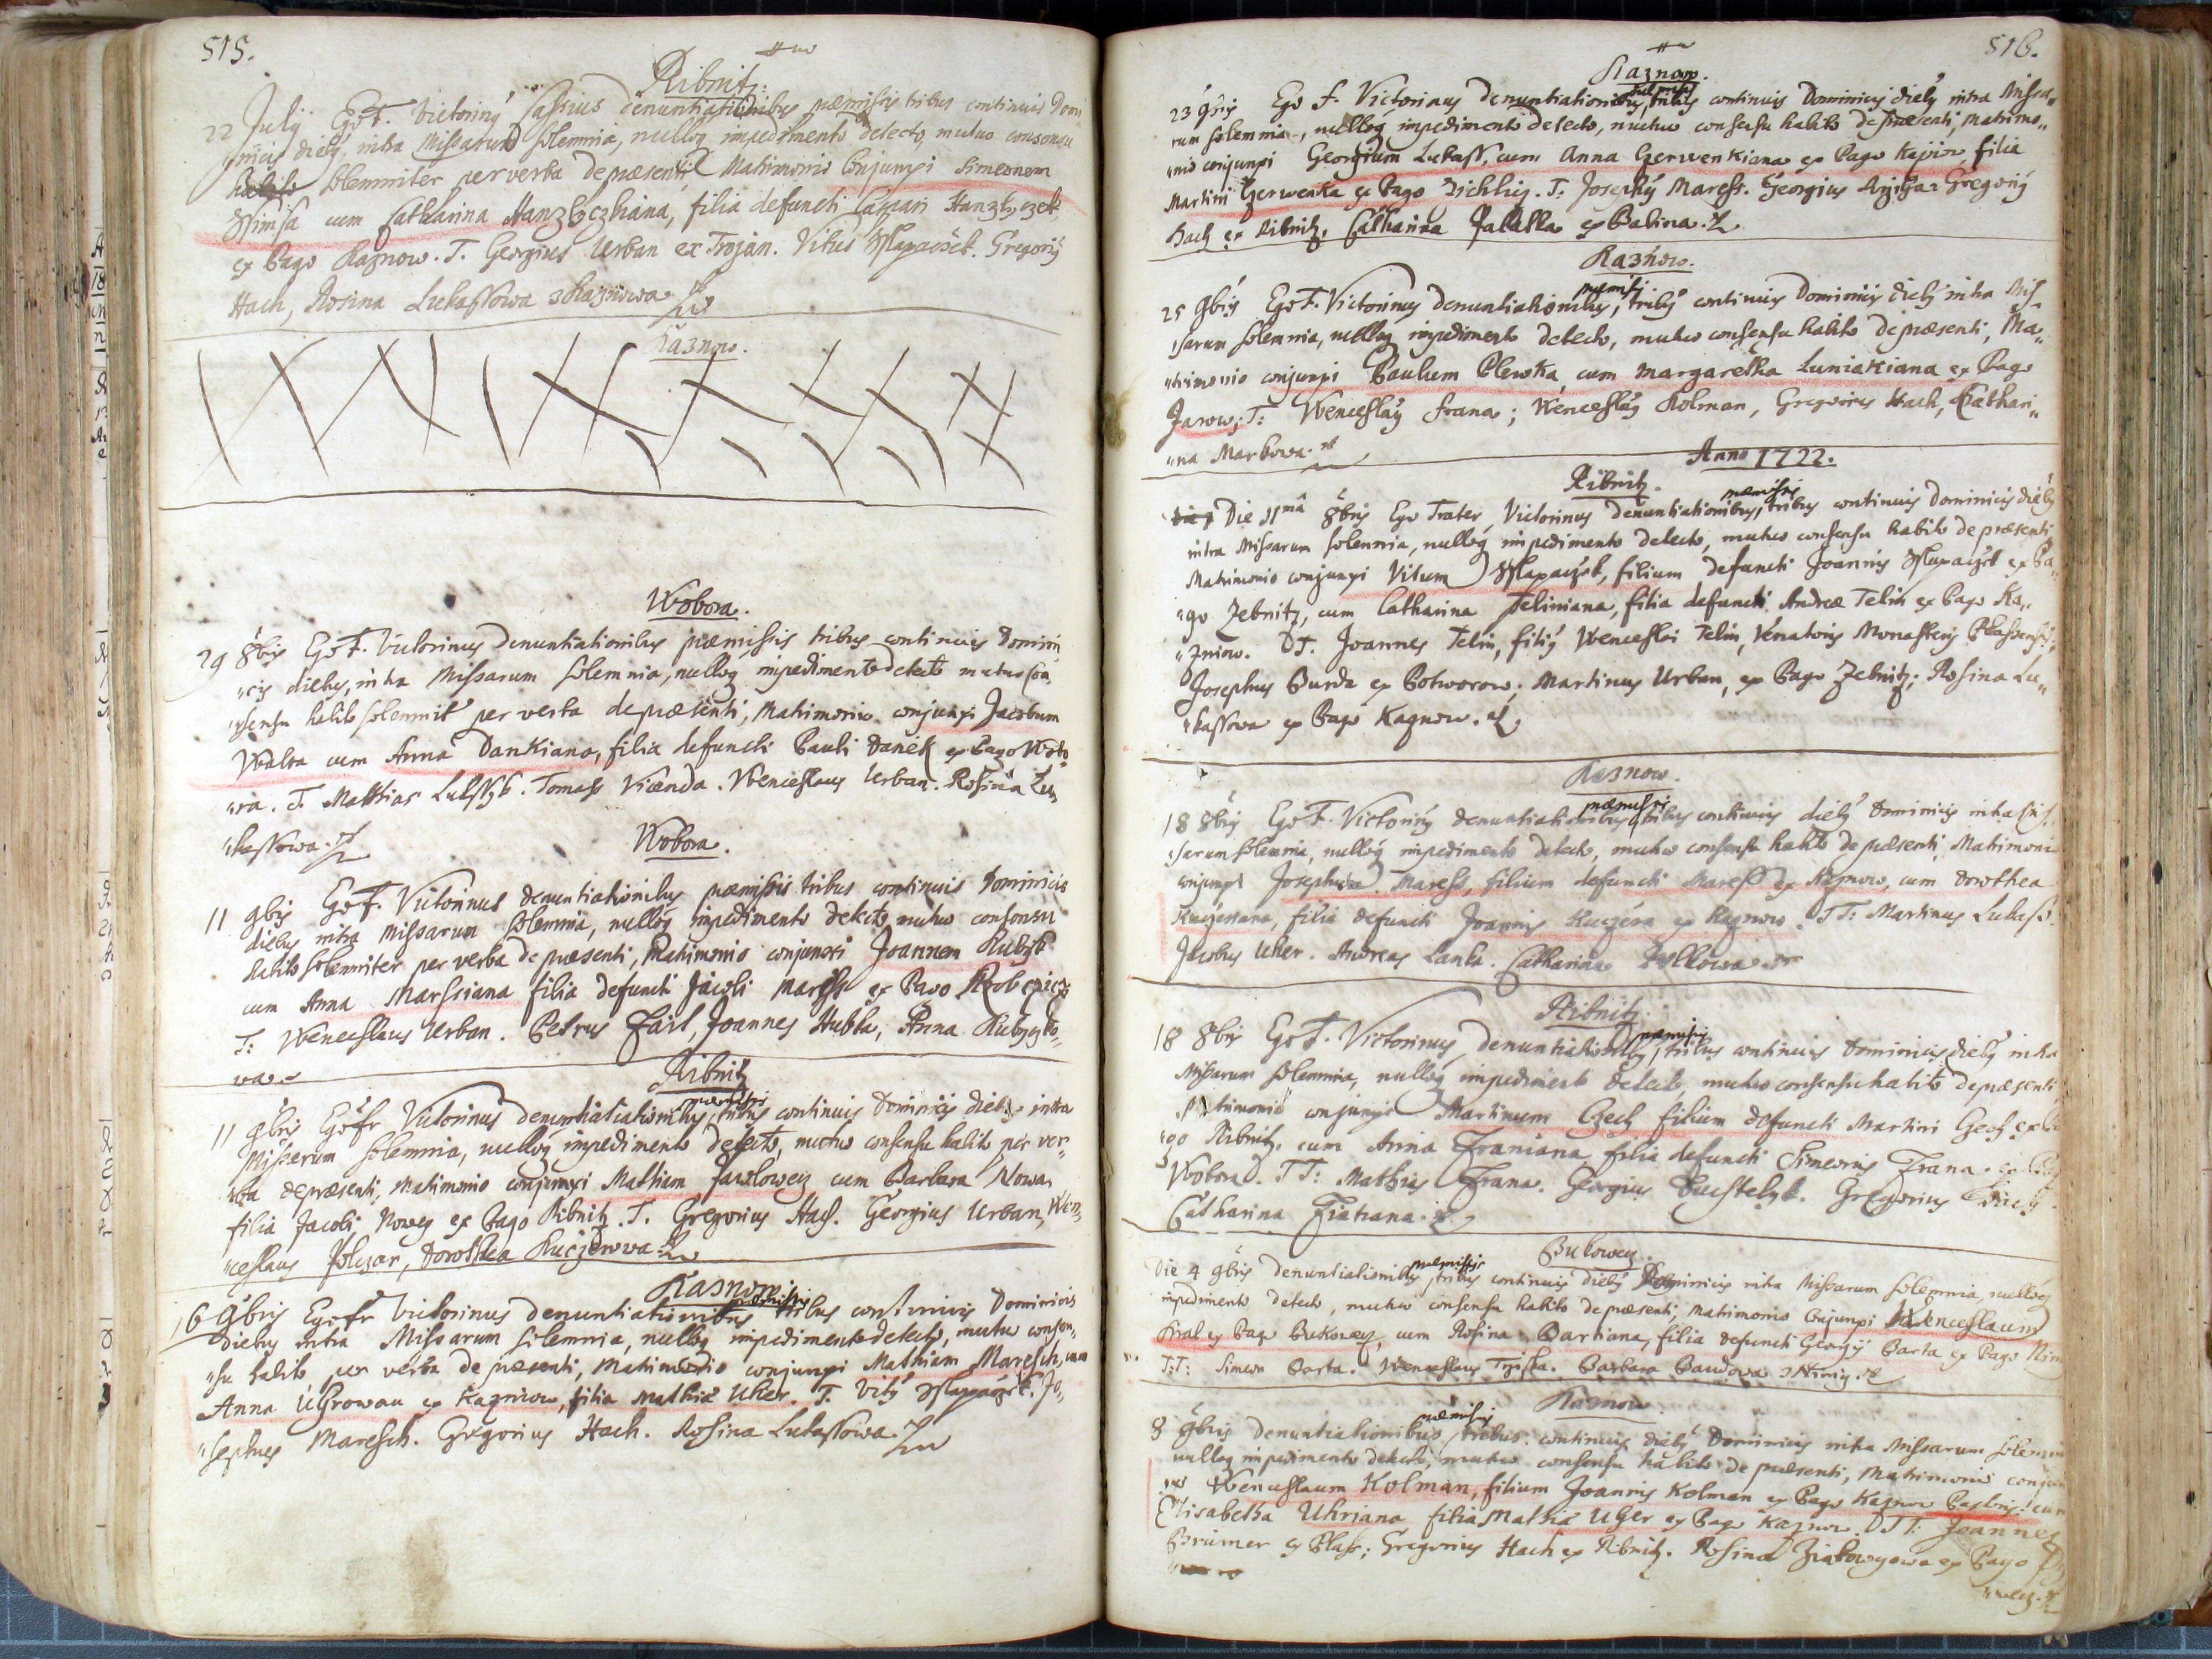 515.
Ribnitz.
22 July Ego F. Victoriny Cassius denuntiationibus præmissis tribus continuis Domi„
„nicis dieby, intra Missarum solemnia, nulloq impedimento detecto, mutuo consensu
habito solemniter per verba de præsenti Matrimonio Conjunxi Simeonem
cum Catharina Hanzlyczkiana, filia defuncti Caspari Hanzlyczek
ex Pago Kaznow. T. Georgius Urban ex Trojan. Vitus Gregoriy
Hach, Rosina Lukassowa z Kaznowa
Kaznow.
Wobora.
29 8bris Ego F. Victorinus denuntiationibus præmissis tribus continuis Domini„
„cis diebus, intra Missarum solemnia, nulloq impedimento detecto mutuo con„
„sensu habito solemnit per verba de præsenti, Matrimonio conjunxi Jacobum
cum Anna Dankiana, filia defuncti Pauli Danek ex Pago Wobo„
„ra. T. Matthias Tomass Wenceslaus Urban. Rosina Lu„
„kassowa.
Wobora.
11 9bris Ego F. Victorinus denuntiationibus præmissis tribus continuis Dominicis
diebus intra Missarum solemnia, nulloq impedimento detecto, mutuo consensu
habito solemniter per verba de præsenti, Matrimonio conjunxi Joannem
cum Anna Marssiana filia defuncti Jacobi Maress ex Pago
T: Wenceslaus Urban. Petrus Joannes Hubka, Anna
wa.
Ribnitz
11 9bris Ego fr Victorinus denuntiationibus præmissis tribus continuis Dominicis diebus intra
Missarum solemnia, nulloq impedimento detecto, mutuo consensu habito per ver„
„ba de præsenti, Matrimonio conjunxi Mathiam Pawlowey cum Barbara Nowa,
filia Jacobi Nowey ex Pago Ribnitz. T. Gregorius Hach. Georgius Urban, Wen„
„ceslaus Dorothea Kuczerowa
Kasnow
16 9bris Ego fr Victorinus denuntiationibus præmissis tribus continuis Dominicis
diebus intra Missarum solemnia, nulloq impedimento detecto, mutuo consen„
„su habito per verba de præsenti, Matrimonio conjunxi Mathiam Maresch, cum
Anna Uhrowau ex Kazniow, filia Mathiæ Uher. T. Vity Jo„
„sephus Maresch. Gregorius Hach. Rosina Lukassowa.
516.
Kaznow.
23 9bris Ego F. Victorinus denuntiationibus, præmissis tribus continuis Dominicis dieby intra Missa„
rum solemnia, nulloq impedimento detecto, mutuo consensu habito de præsenti, Matrimo„
„nio conjunxi Georgium Lukass, cum Anna Czerwenkiana ex Pago filia
Martini Czerwenka ex Pago T: Josephy Maress. Georgius Gregoriy
Hach ex Ribnitz, Catharina ex Babina.
Kaznow.
25 9bris Ego F. Victorinus denuntiationibus, præmissis triby continuis Dominicis dieby intra Mis„
„sarum solemnia, nulloq impedimento detecto, mutuo consensu habito de præsenti, Ma„
„trimonio conjunxi Paulum Plewka, cum Margaretha Luniakiana ex Pago
Jarow; T: Wenceslaus Frana; Wenceslaus Kolman, Gregorius Hach, Cathari„
„na Markowa.
Anno 1722.
Ribnitz.
Die 11mâ 8bris Ego Frater Victorinus denuntiationibus, præmissis tribus continuis Dominicis diebus
intra Missarum solemnia, nulloq impedimento detecto, mutuo consensu habito de præsenti
Matrimonio conjunxi Vitum filium defuncti Joannis ex Pa„
„go Zebnitz, cum Catharina Teliniana, filia defuncti Andreæ Telin ex Pago Ka„
„zniow. TT. Joannes Telin, filiy Wenceslai Telin, Venatoris Monasterij Plassensis,
Josephus Burda ex Potworow; Martinus Urban, ex Pago Zebnitz; Rosina Lu„
„kassowa ex Pago Kaznow.
Kaznow.
18 8bris Ego F. Victoriny denuntiationibus præmissis tribus continuis dieby Dominicis intra Mis„
„sarum solemnia, nulloq impedimento detecto, mutuo consensu habito de præsenti Matrimonio
conjunxi Josephum Maress, filium defuncti Maress ex Kaznow, cum Dorothea
filia defuncti Joannis Kuczera ex Kaznow. TT: Martinus Lukass.
Jacobus Uher. Andreas Lanka. Catharina
Ribnitz.
18 8bris Ego F. Victorinus, denuntiationiby præmissis tribus continuis Dominicis dieby intra
Missarum solemnia, nulloq impedimento detecto, mutuo consensu habito de præsenti
Matrimonio conjunxi Martinum Czech filium defuncti Martini Czech ex Pa
„go Ribnitz, cum Anna Franiana filia defuncti Simeonis Frana ex
Wobora. TT: Mathias Frana. Georgius Gregorius
Catharina
Bukowez.
Die 4 9bris denuntiationiby præmissis tribus continuis dieby Dominicis intra Missarum solemnia, nulloq
impedimento detecto, mutuo consensu habito de præsenti, Matrimonio Conjunxi Wenceslaum
Kral ex Pago Bukowez, cum Rosina Bartiana, filia defuncti Georgij Barta ex Pago
T:T: Simeon Barta. Wenceslaus Barbara
Kaznow.
8 9bris denuntiationibus præmissis tribus continuis dieby Dominicis intra Missarum solemn
nulloq impedimento detecto, mutuo consensu habito de præsenti, Matrimonio conjun
„xi Wenceslaum Kolman, filium Joannis Kolman ex Pago Kaznow cum
Elisabetha Uhriana filia Mathiæ Uher ex Pago Kaznow. TT: Joannes
ex Plass; Gregorius Hach ex Ribnitz. Rosina ex Pago